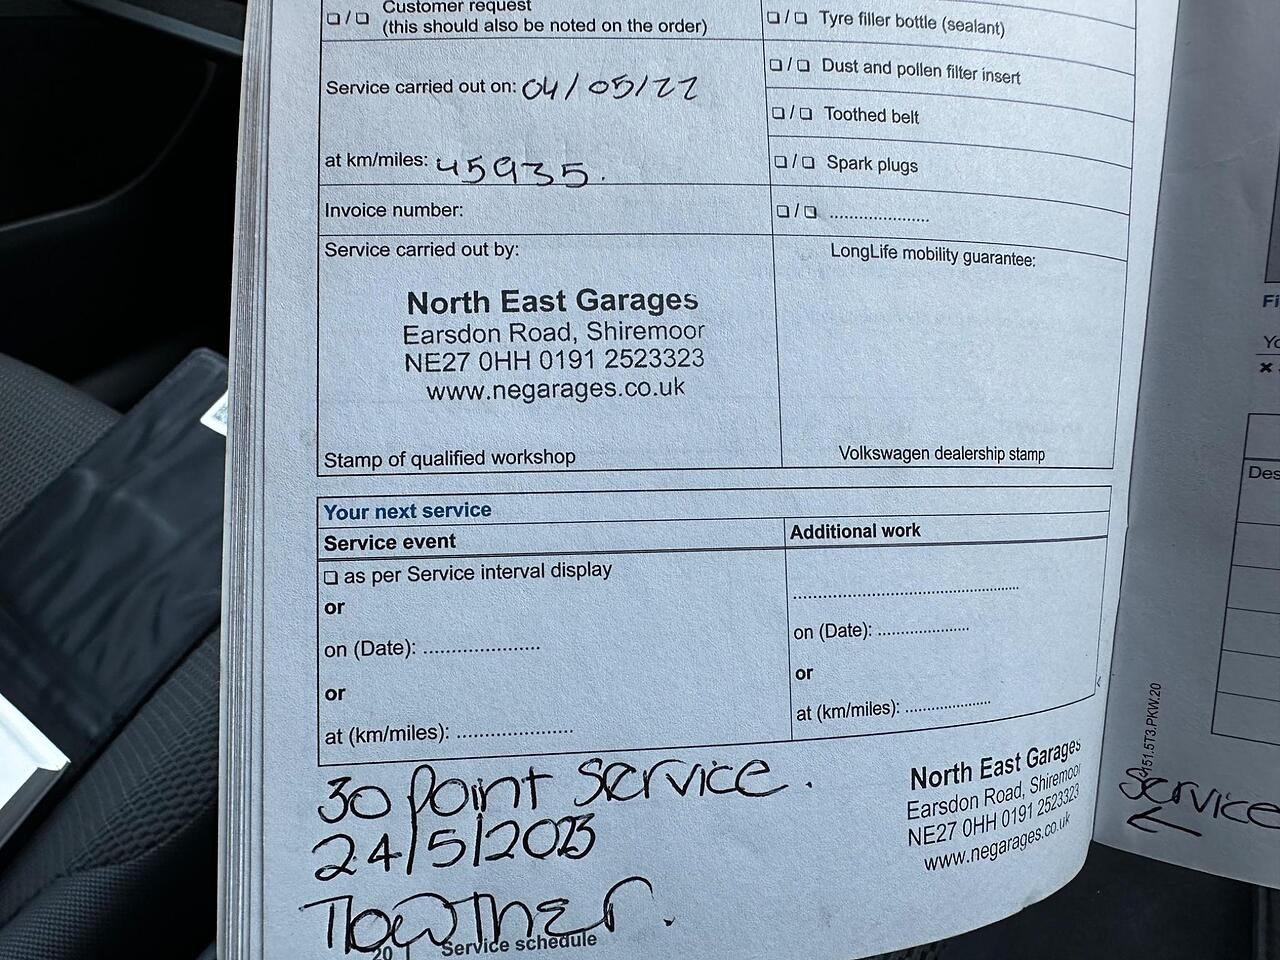 ❏/❏ Customer request
(this should also be noted on the order)
Service carried out on: 04/05/22
at km/miles: 45935.
Invoice number:
Service carried out by:
North East Garages
Earsdon Road, Shiremoor
NE27 0HH 0191 2523323
www.negarages.co.uk
Stamp of qualified workshop
❏/❏ Tyre filler bottle (sealant)
❏/❏ Dust and pollen filter insert
❏/❏ Toothed belt
❏/❏ Spark plugs
❏/❏ ....................
LongLife mobility guarantee:
Volkswagen dealership stamp
Your next service
Service event
❏ as per Service interval display
or
on (Date): .....................
or
at (km/miles): .....................
Additional work
.........................................
on (Date): .................
or
at (km/miles): ................
30 Point Service.
24/5/2023
North East Garages
Earsdon Road, Shiremoor
NE27 0HH 0191 2523323
www.negarages.co.uk
20 | Service schedule
151.5T3.PKW.20
Service
←
Fi
Yo
Des